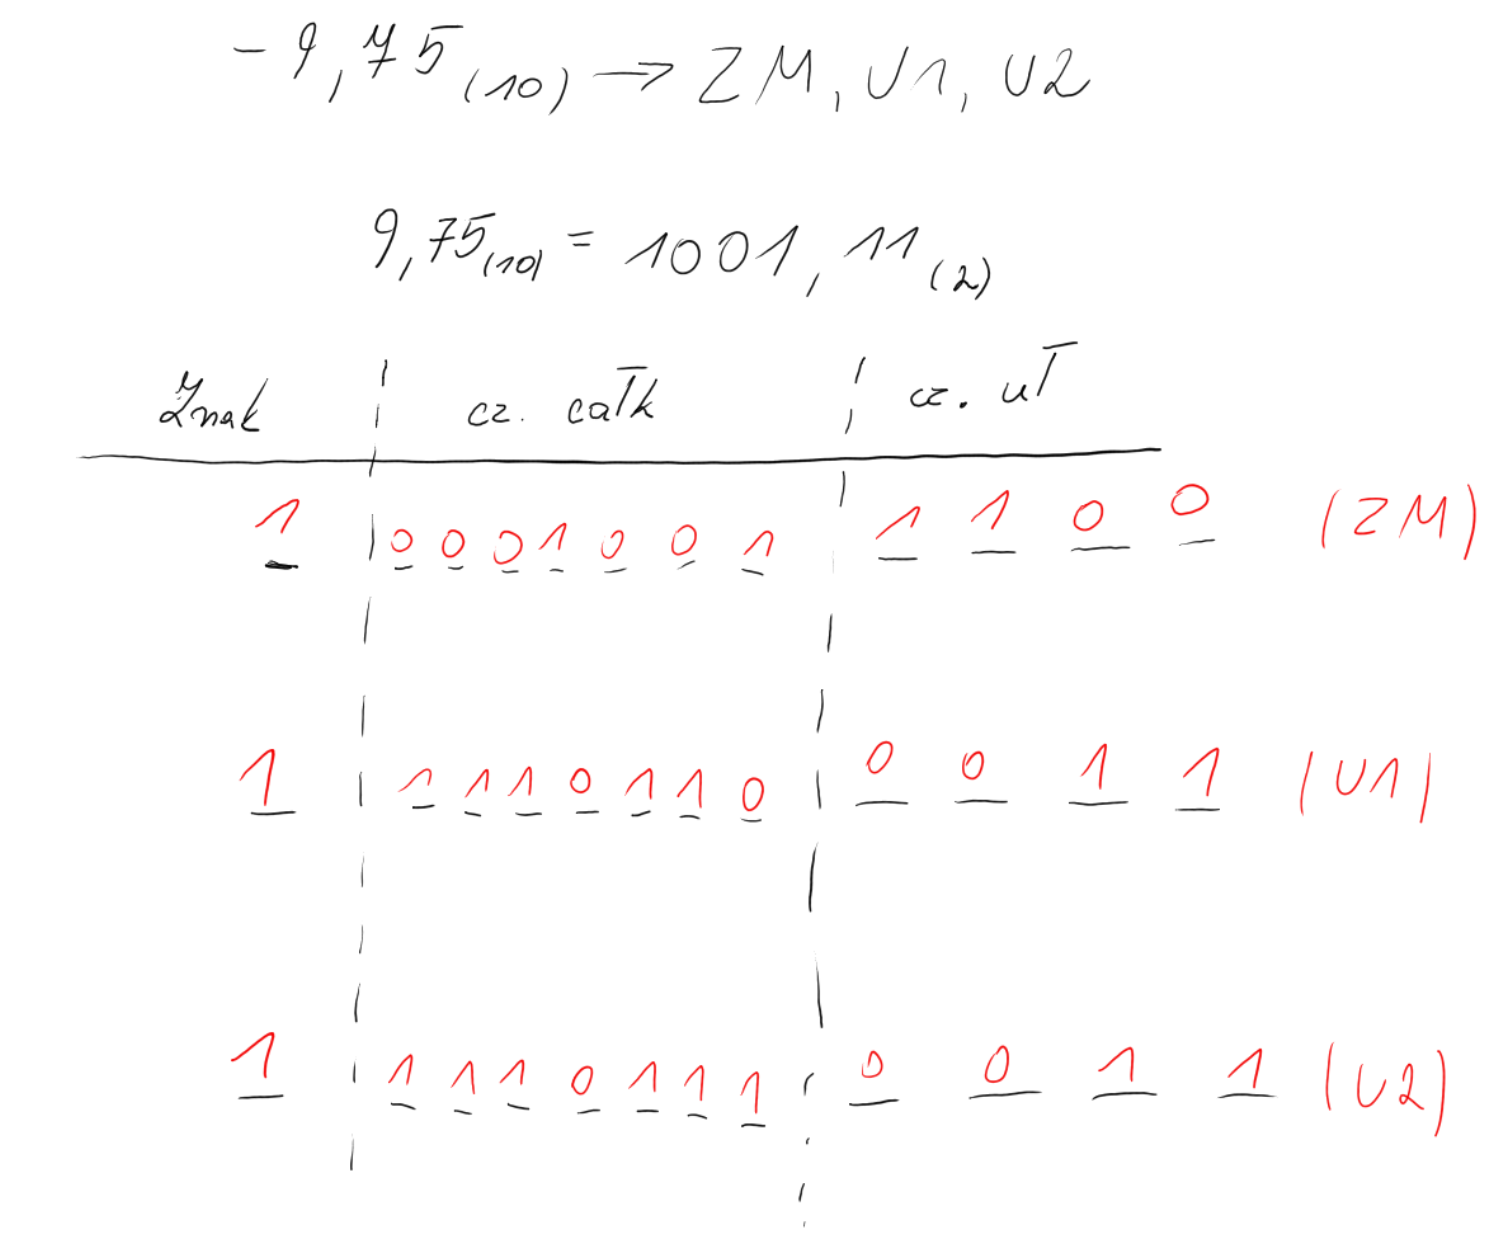 - 9,75 (10) → ZM, U1, U2
9,75(10) = 1001,11 (2)
Znak cz. całk cz. uł
1 0001001 1100 (ZM)
1 1110110 0011 (U1)
1 1110111 0011 (U2)